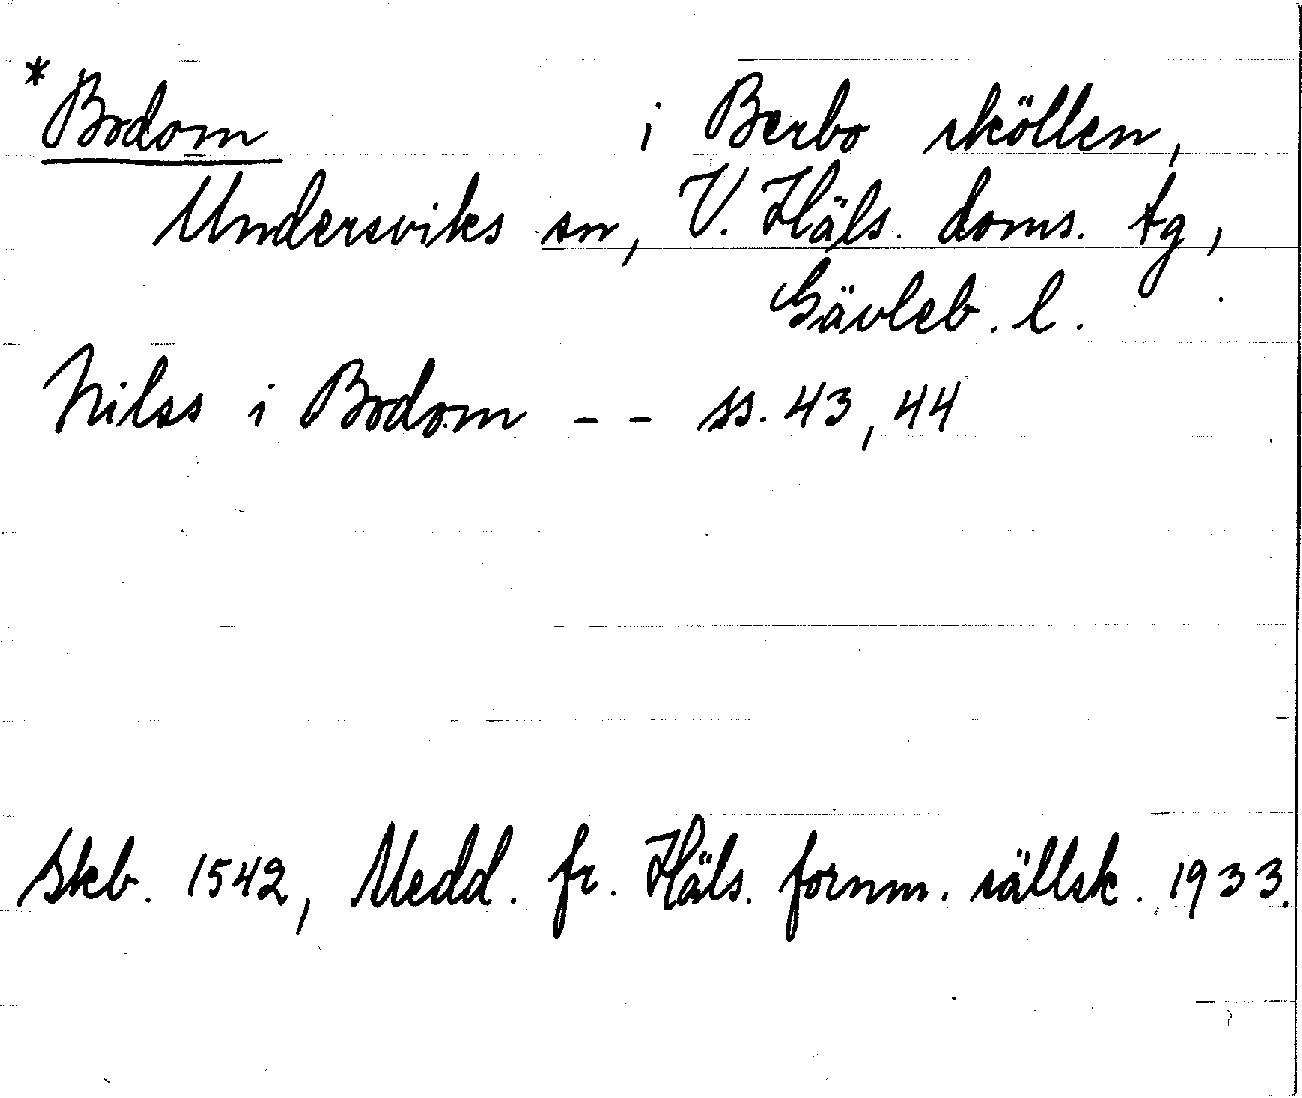 *Bodom i Berbo sköllen,
Undersviks sn, V. Häls. doms. tg,
Gävleb. l.
Nilss i Bodom - - ss. 43, 44
Skb. 1542, Medd. fr. Häls. fornm. sällsk. 1933.